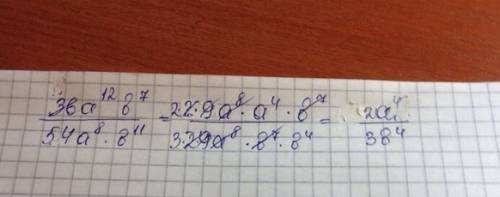 36a¹² в⁷ / 54a⁸ · в¹¹ = 2·2·9a⁸ · a⁴ · в⁷ / 3·2·9a⁸ · в⁷ · в⁴ = 2a⁴ / 3в⁴